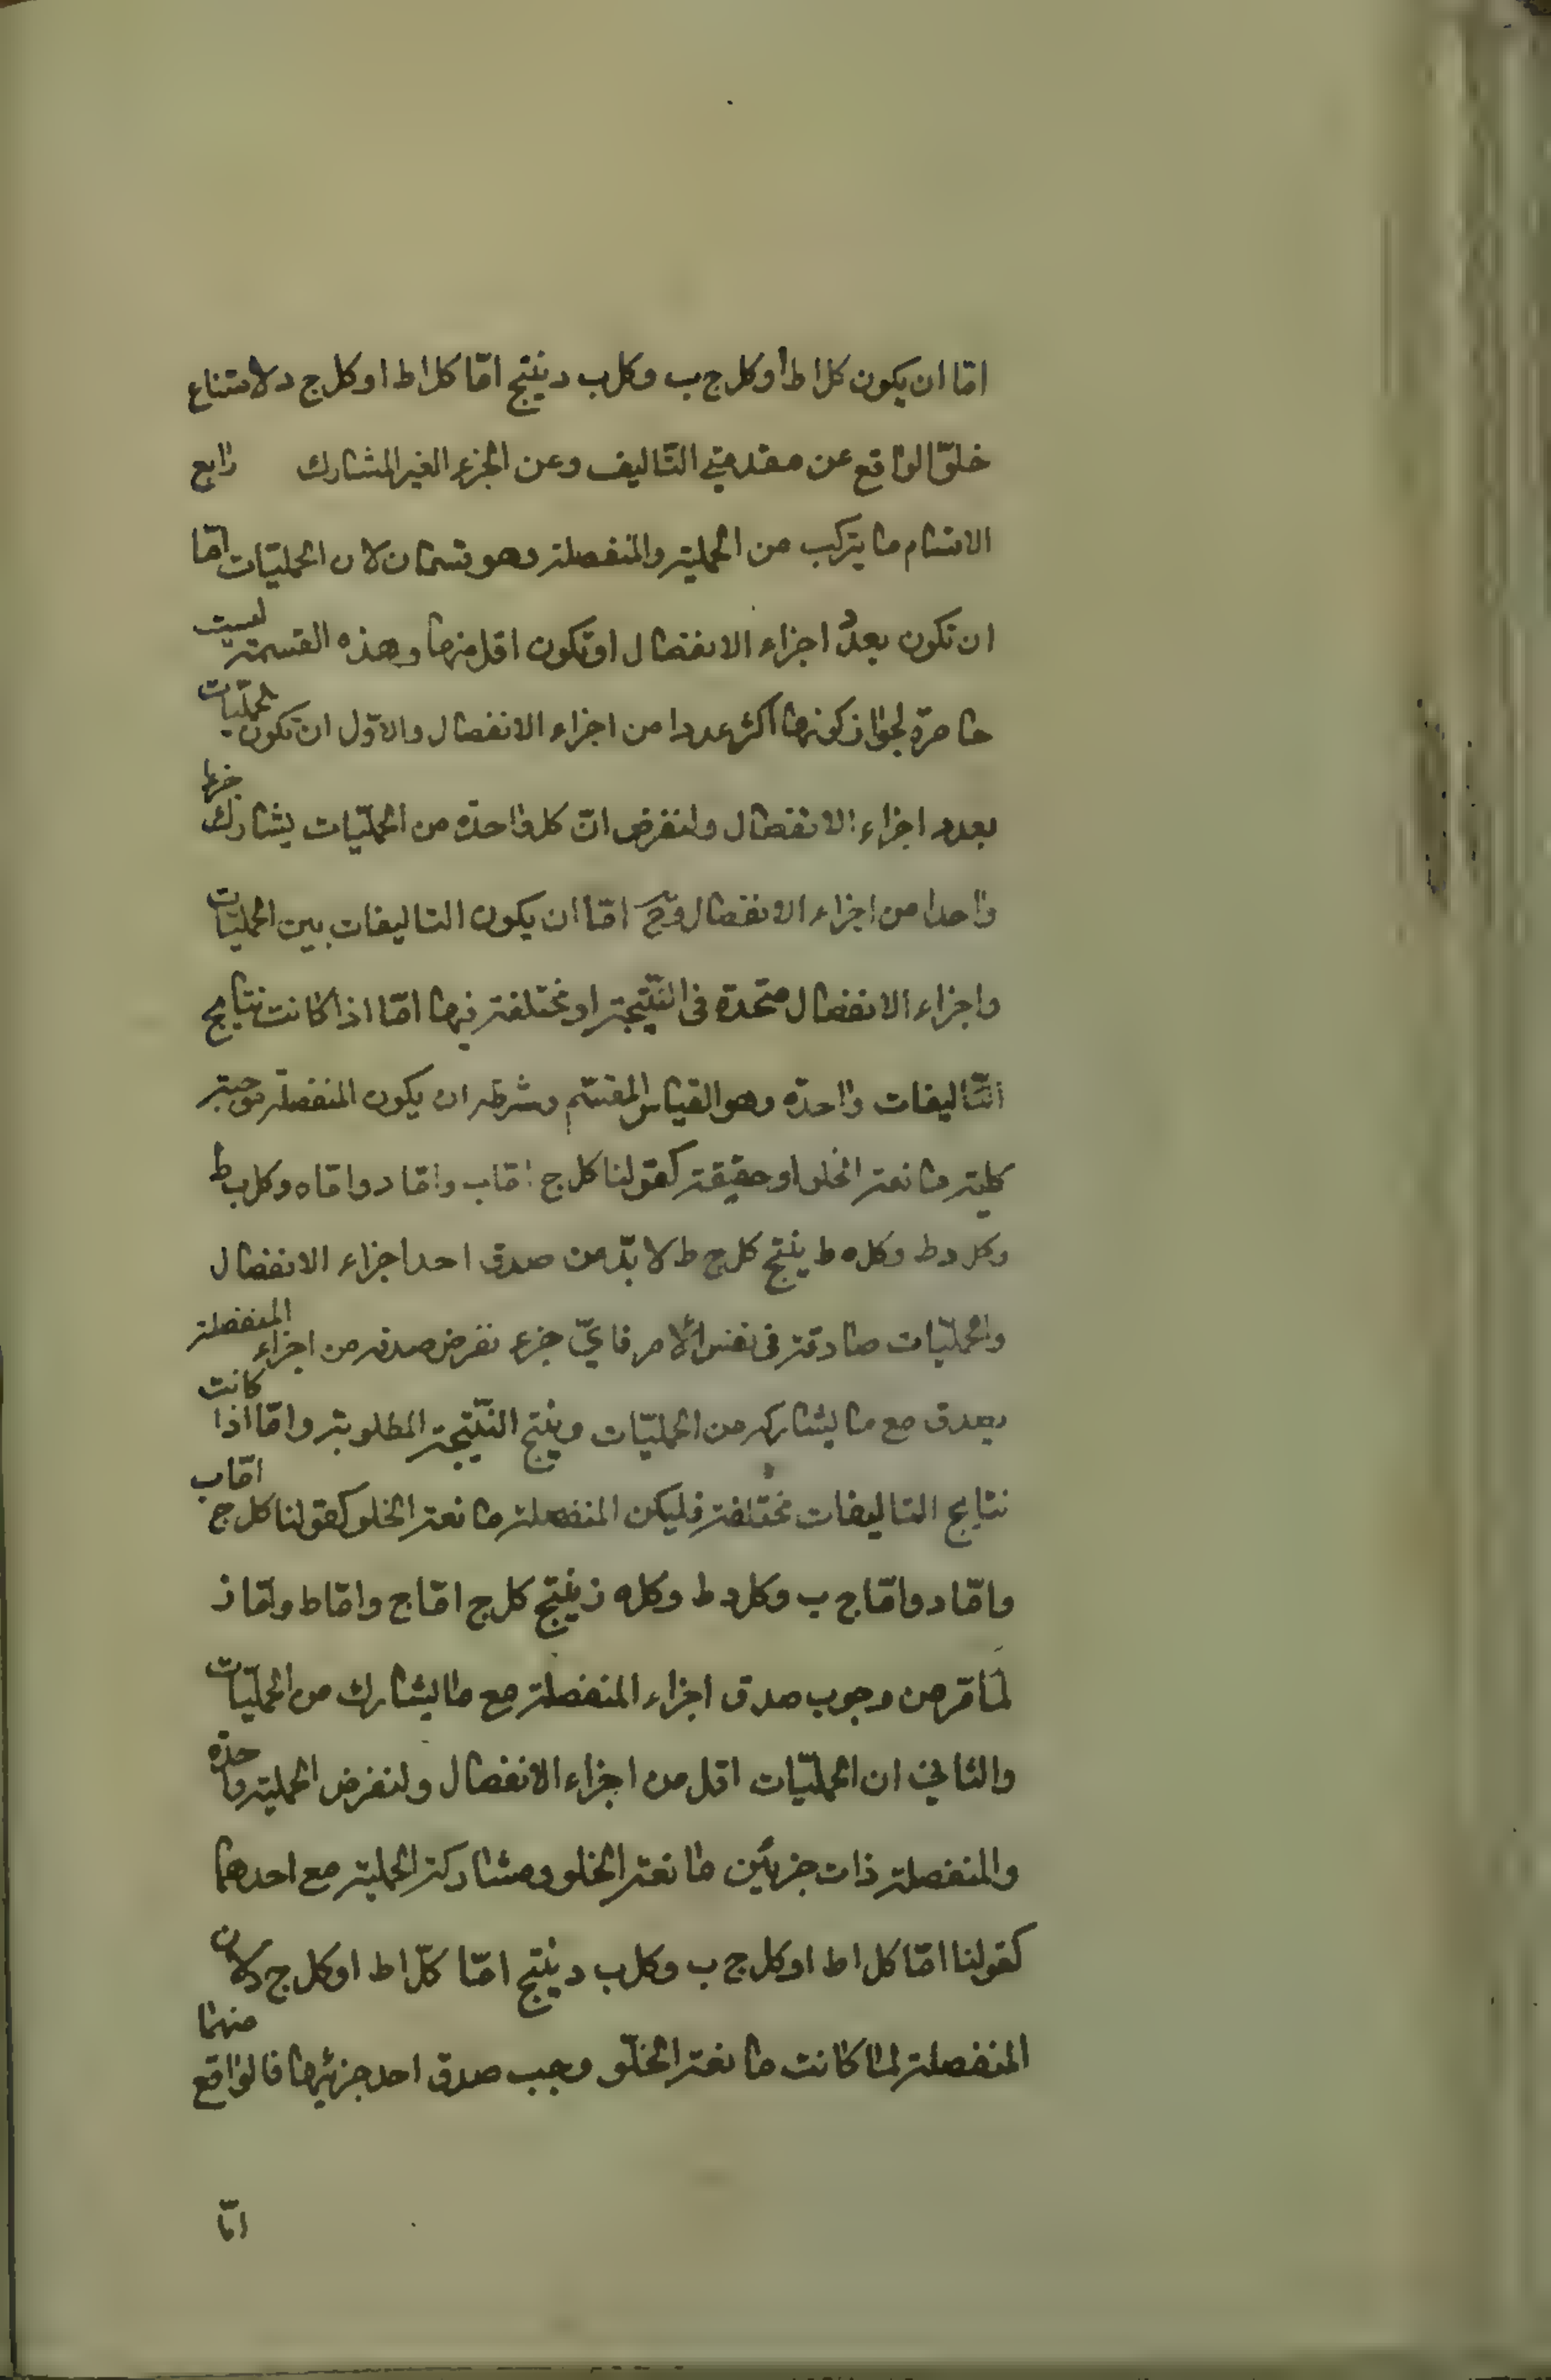 امّا ان يكون كل ا ط او كل ج ب وكل ب د ينتج امّا كل ا ط او كل ج د لامتناع
خلوّ الواقع عن مقدمتي التّاليف وعن الجزء الغير المشارك رابع
الاقسام ما يتركب من الحملية والمنفصلة وهو قسمان لان الحمليّات امّا
ان تكون بعدد اجزاء الانفصال او تكون اقل منها وهذه القسمة ليست
حاصرة لجواز كونها اكثر عددا من اجزاء الانفصال والاوّل ان تكون الحمليّات
بعدد اجزاء الانفصال ولنفرض انّ كل واحدة من الحمليّات يشارك جزءا
واحدا من اجزاء الانفصال وح امّا ان يكون التاليفات بين الحمليّات
واجزاء الانفصال متحدة فى النّتيجة او مختلفة فيها امّا اذا كانت نتايج
التّاليفات واحدة وهو القياس المقسّم وشرطه ان يكون المنفصلة موجبة
كلية مانعة الخلو او حقيقة كقولنا كل ج امّا ب وامّا د وامّا ه وكل ب ط
وكل د ط وكل ه ط ينتج كل ج ط لا بدّ من صدق احد اجزاء الانفصال
والحمليّات صادقة فى نفس الامر فايّ جزء نفرض صدقه من اجزاء المنفصلة
يصدق مع ما يشاركه من الحمليّات وينتج النّتيجة المطلوبة وامّا اذا كانت
نتايج التاليفات مختلفة فليكن المنفصلة مانعة الخلو كقولنا كل ج امّا ب
وامّا د وامّا ج ب وكل د ط وكل ه ز ينتج كل ج امّا ج وامّا ط وامّا ز
لما مّر من وجوب صدق اجزاء المنفصلة مع ما يشارك من الحمليّات
والثاني ان الحمليّات اقل من اجزاء الانفصال ولنفرض الحملية واحدة
والمنفصلة ذات جزئين مانعة الخلو ومشاركة الحملية مع احدهما
كقولنا امّا كل ا ط او كل ج ب وكل ب د ينتج امّا كلّ ا ط او كل ج د لان
المنفصلة لما كانت مانعة الخلّو وجب صدق احد جزئيها فالواقع منهما
امّا